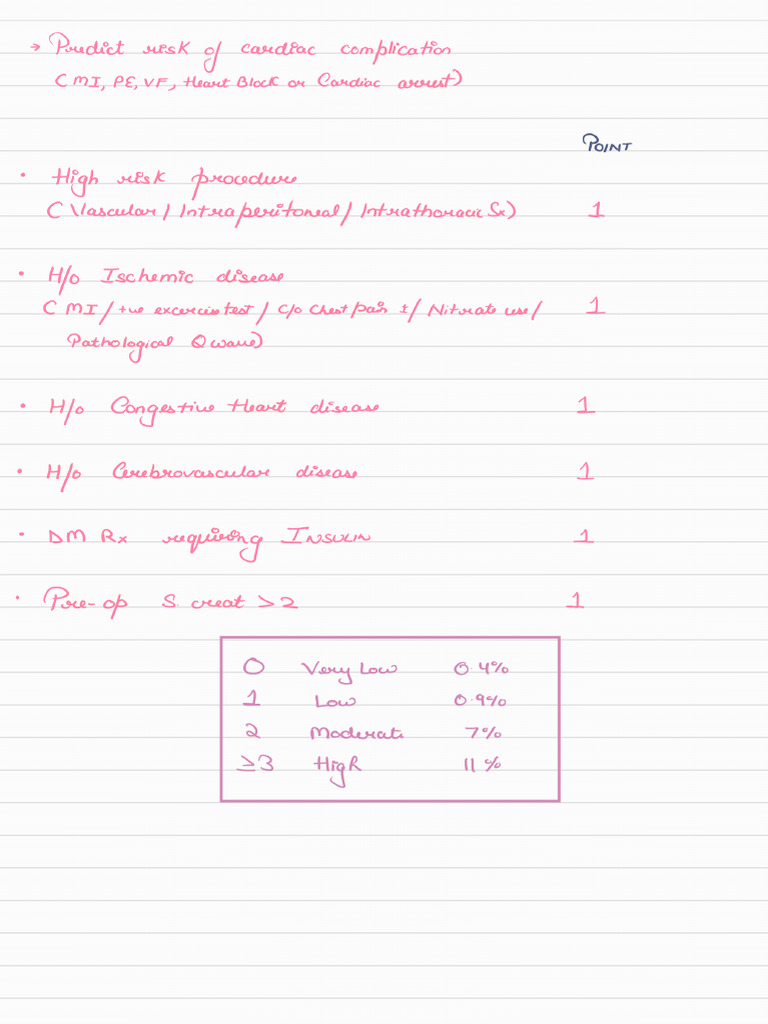 → Predict risk of cardiac complication
( MI, PE, VF, Heart Block or Cardiac arrest)
POINT
• High risk procedure
( Vascular / Intraperitoneal / Intrathoracic Sx) 1
• H/o Ischemic disease
( MI / +ve excercise test / C/o Chest pain ±/ Nitrate use / 1
Pathological Q wave)
• H/o Congestive Heart disease 1
• H/o Cerebrovascular disease 1
• DM Rx requiring INSULIN 1
• Pre-op S. creat > 2 1
0 Very Low 0.4%
1 Low 0.9%
2 Moderate 7%
≥3 High 11%